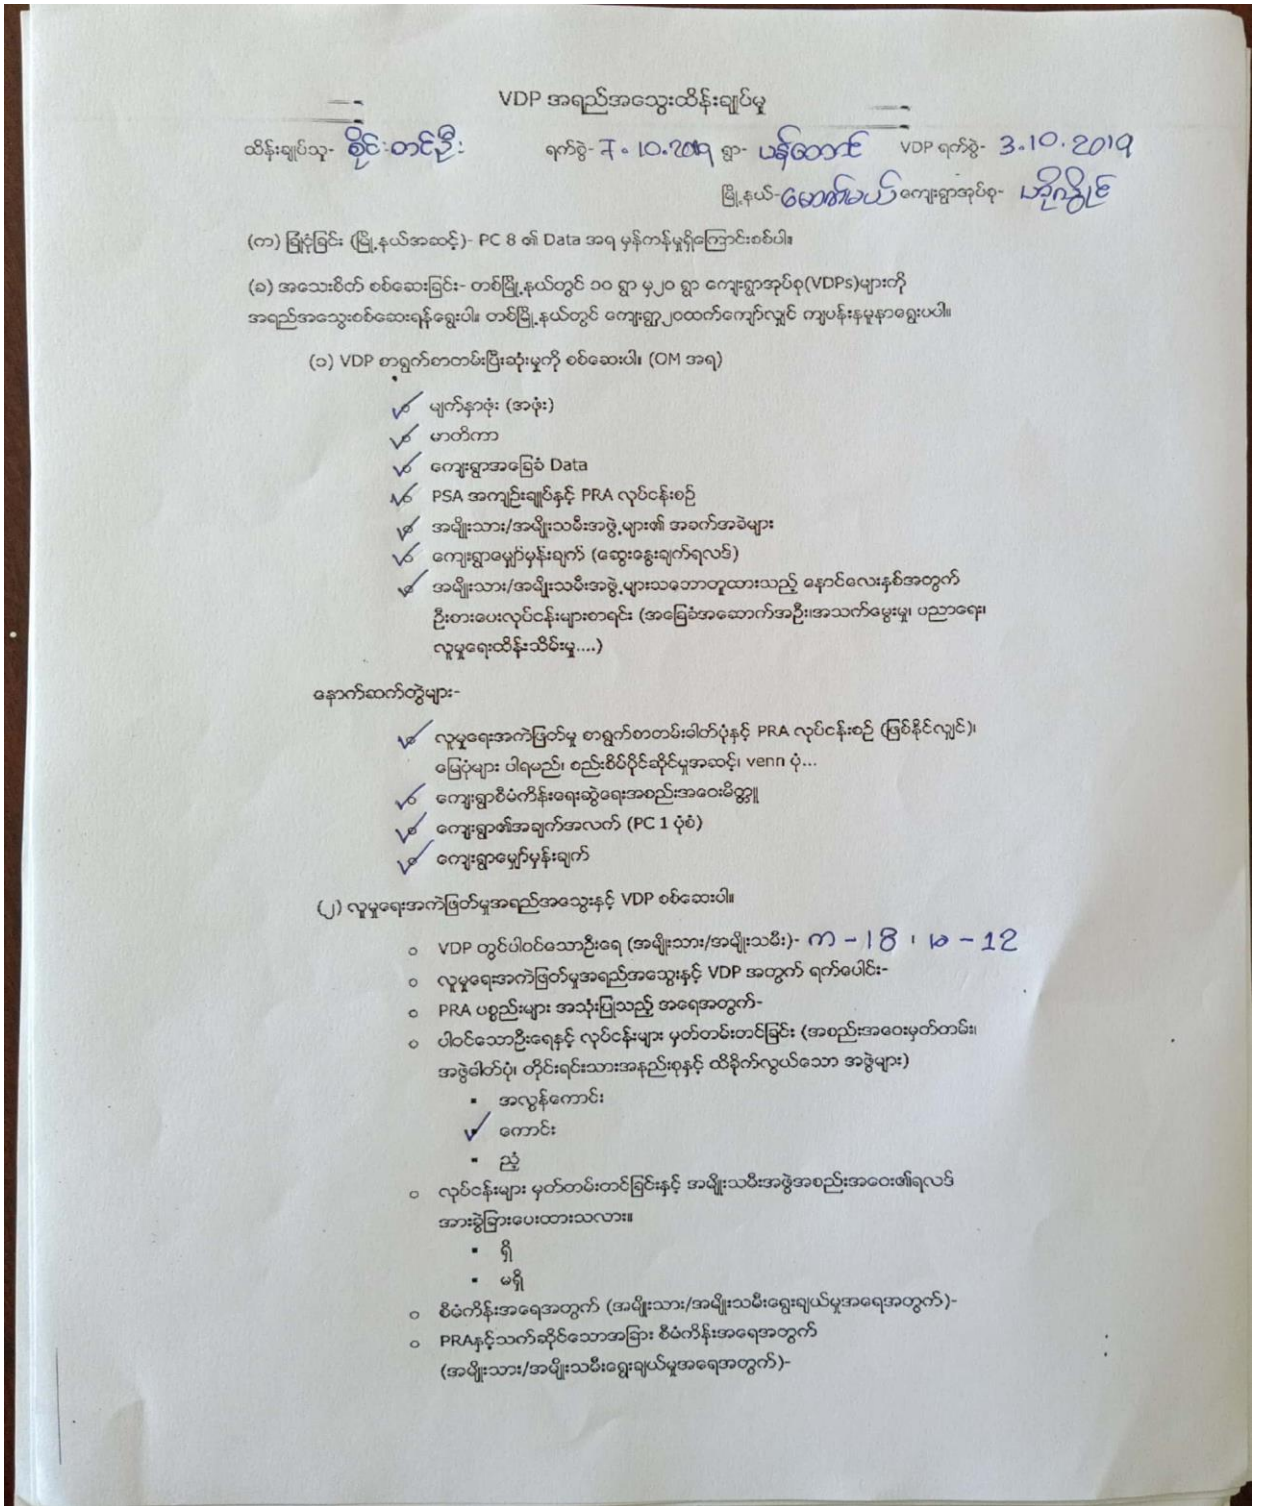 VDP အရည်အသွေးထိန်းချုပ်မှု
ထိန်းချုပ်သူ- စိုင်းတင်ဦး ရက်စွဲ- 7.10.2019 ရွာ- ပန်တောင် VDP ရက်စွဲ- 3.10.2019
မြို့နယ်- မောက်မယ် ကျေးရွာအုပ်စု-
(က) ခြုံငုံခြင်း (မြို့နယ်အဆင့်)- PC 8 ၏ Data အရ မှန်ကန်မှုရှိကြောင်းစစ်ပါ။
(ခ) အသေးစိတ် စစ်ဆေးခြင်း- တစ်မြို့နယ်တွင် ၁၀ ရွာ မှ၂၀ ရွာ ကျေးရွာအုပ်စု(VDPs)များကို
အရည်အသွေးစစ်ဆေးရန်ရွေးပါ။ တစ်မြို့နယ်တွင် ကျေးရွာ၂၀ထက်ကျော်လျှင် ကျပန်းနမူနာရွေးပပါ။
(၁) VDP စာရွက်စာတမ်းပြီးဆုံးမှုကို စစ်ဆေးပါ။ (OM အရ)
မျက်နှာဖုံး (အဖုံး)
မာတိကာ
ကျေးရွာအခြေခံ Data
PSA အကျဉ်းချုပ်နှင့် PRA လုပ်ငန်းစဉ်
အမျိုးသား/အမျိုးသမီးအဖွဲ့များ၏ အခက်အခဲများ
ကျေးရွာမျှော်မှန်းချက် (ဆွေးနွေးချက်ရလဒ်)
အမျိုးသား/အမျိုးသမီးအဖွဲ့များသဘောတူထားသည့် နောင်လေးနှစ်အတွက်
ဦးစားပေးလုပ်ငန်းများစာရင်း (အခြေခံအဆောက်အဦး၊အသက်မွေးမှု၊ ပညာရေး၊
လူမှုရေးထိန်းသိမ်းမှု....)
နောက်ဆက်တွဲများ-
လူမှုရေးအကဲဖြတ်မှု စာရွက်စာတမ်းဓါတ်ပုံနှင့် PRA လုပ်ငန်းစဉ် (ဖြစ်နိုင်လျှင်)၊
မြေပုံများ ပါရမည်၊ စည်းစိမ်ပိုင်ဆိုင်မှုအဆင့်၊ venn ပုံ...
ကျေးရွာစီမံကိန်းရေးဆွဲရေးအစည်းအဝေးမိတ္တူ
ကျေးရွာ၏အချက်အလက် (PC 1 ပုံစံ)
ကျေးရွာမျှော်မှန်းချက်
(၂) လူမှုရေးအကဲဖြတ်မှုအရည်အသွေးနှင့် VDP စစ်ဆေးပါ။
○ VDP တွင်ပါဝင်သောဦးရေ (အမျိုးသား/အမျိုးသမီး)- က - 18 ၊ မ - 12
○ လူမှုရေးအကဲဖြတ်မှုအရည်အသွေးနှင့် VDP အတွက် ရက်ပေါင်း-
○ PRA ပစ္စည်းများ အသုံးပြုသည့် အရေအတွက်-
○ ပါဝင်သောဦးရေနှင့် လုပ်ငန်းများ မှတ်တမ်းတင်ခြင်း (အစည်းအဝေးမှတ်တမ်း၊
အဖွဲ့ဓါတ်ပုံ၊ တိုင်းရင်းသားအနည်းစုနှင့် ထိခိုက်လွယ်သော အဖွဲ့များ)
▪ အလွန်ကောင်း
ကောင်း
▪ ညံ့
○ လုပ်ငန်းများ မှတ်တမ်းတင်ခြင်းနှင့် အမျိုးသမီးအဖွဲ့အစည်းအဝေး၏ရလဒ်
အားခွဲခြားပေးထားသလား။
▪ ရှိ
▪ မရှိ
○ စီမံကိန်းအရေအတွက် (အမျိုးသား/အမျိုးသမီးရွေးချယ်မှုအရေအတွက်)-
○ PRAနှင့်သက်ဆိုင်သောအခြား စီမံကိန်းအရေအတွက်
(အမျိုးသား/အမျိုးသမီးရွေးချယ်မှုအရေအတွက်)-